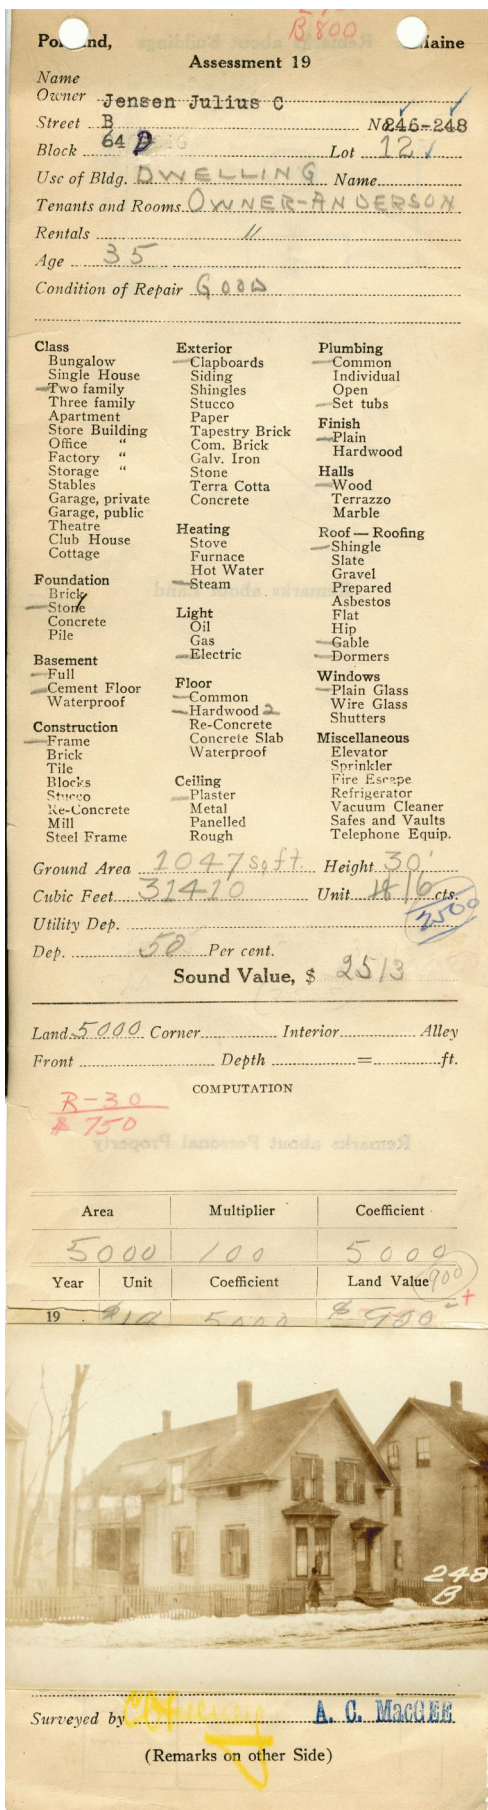 B-800
Portland, Maine
Assessment 19
Name
Owner Jensen Julius C
Street B No. 246-248
Block 64 D Lot 12
Use of Bldg. DWELLING Name
Tenants and Rooms OWNER-ANDERSON
Rentals "
Age 35
Condition of Repair GOOD
Class
Bungalow
Single House
Two family
Three family
Apartment
Store Building
Office "
Factory "
Storage "
Stables
Garage, private
Garage, public
Theatre
Club House
Cottage
Foundation
Brick
Stone
Concrete
Pile
Basement
Full
Cement Floor
Waterproof
Construction
Frame
Brick
Tile
Blocks
Stucco
Re-Concrete
Mill
Steel Frame
Exterior
Clapboards
Siding
Shingles
Stucco
Paper
Tapestry Brick
Com. Brick
Galv. Iron
Stone
Terra Cotta
Concrete
Heating
Stove
Furnace
Hot Water
Steam
Light
Oil
Gas
Electric
Floor
Common
Hardwood 2
Re-Concrete
Concrete Slab
Waterproof
Ceiling
Plaster
Metal
Panelled
Rough
Plumbing
Common
Individual
Open
Set tubs
Finish
Plain
Hardwood
Halls
Wood
Terrazzo
Marble
Roof — Roofing
Shingle
Slate
Gravel
Prepared
Asbestos
Flat
Hip
Gable
Dormers
Windows
Plain Glass
Wire Glass
Shutters
Miscellaneous
Elevator
Sprinkler
Fire Escape
Refrigerator
Vacuum Cleaner
Safes and Vaults
Telephone Equip.
Ground Area 1047 sq ft. Height 30'
Cubic Feet 31410 Unit 16 cts.
2500
Utility Dep.
Dep. 50 Per cent.
Sound Value, $ 2513
Land 5000 Corner Interior Alley
Front Depth = ft.
COMPUTATION
R-30
$ 750
Area Multiplier Coefficient
5000 100 5000
Year Unit Coefficient Land Value 900
19 5000 $ 900 +
248
B
Surveyed by A. C. MacGEE
(Remarks on other Side)